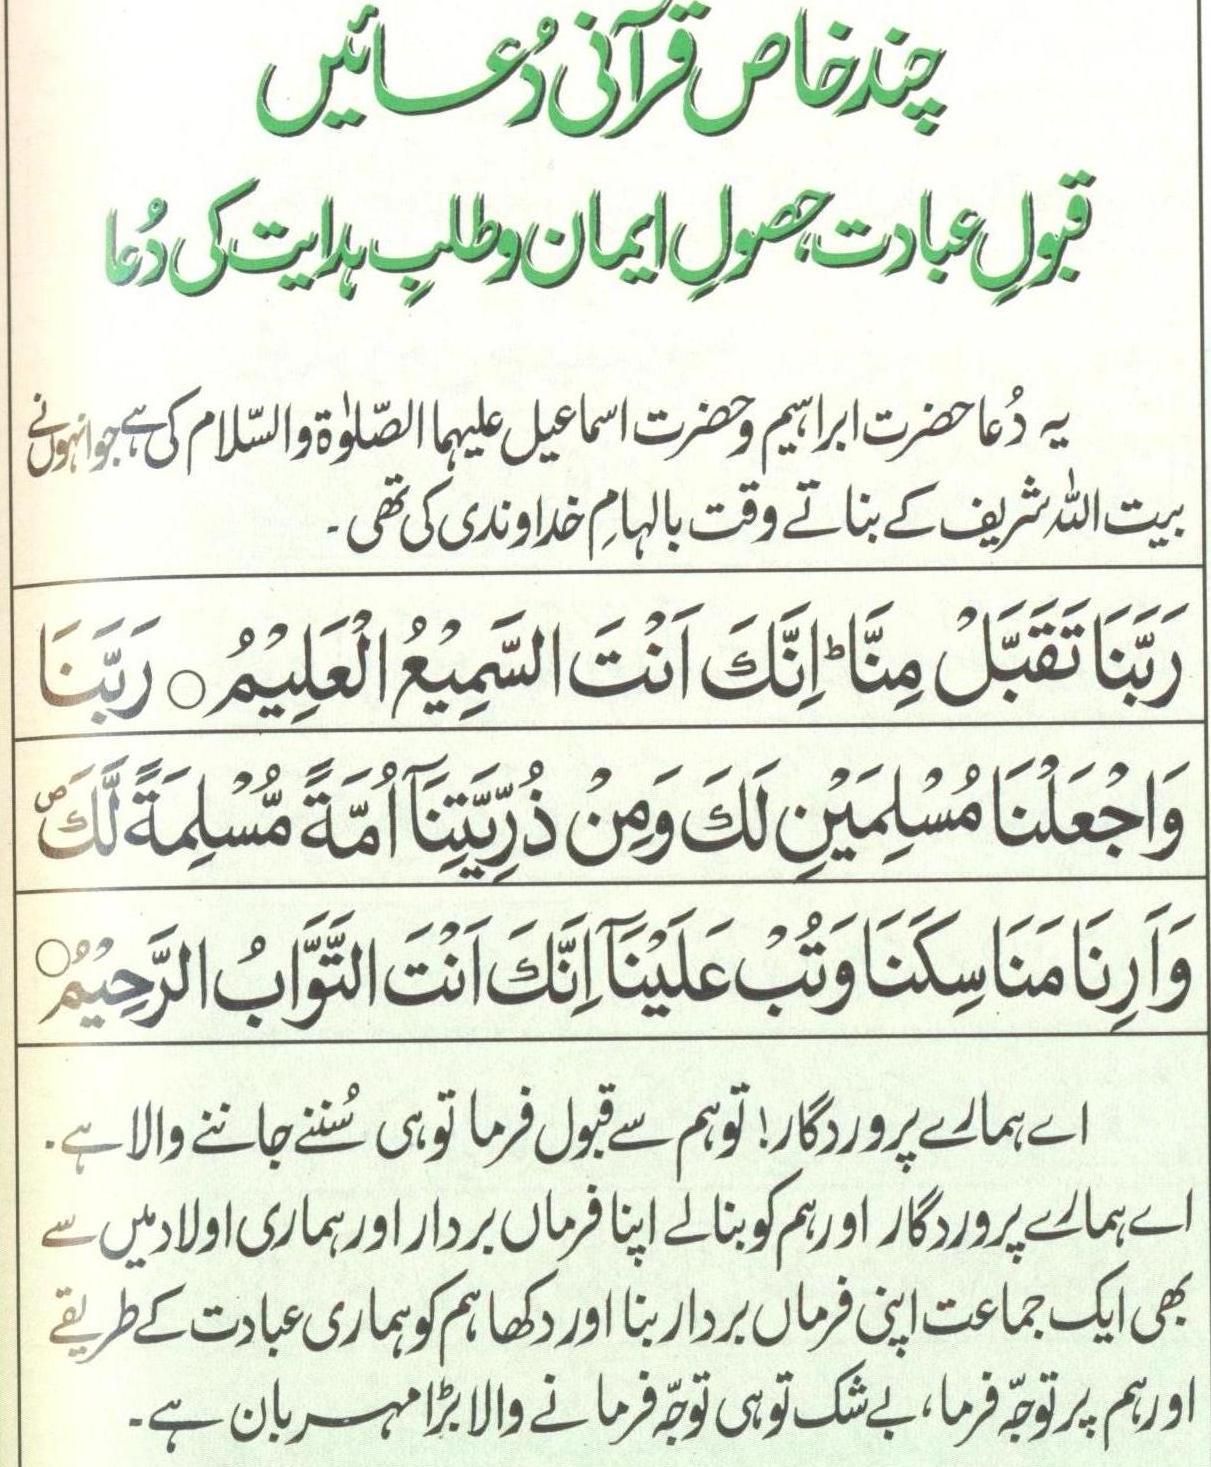 چند خاص قرآنی دُعائیں
قبولِ عبادت، حصولِ ایمان و طلبِ ہدایت کی دُعا
یہ دُعا حضرت ابراہیم و حضرت اسماعیل علیہما الصّلوٰۃ والسّلام کی ہے جو انہوں نے
بیت اللہ شریف کے بناتے وقت بالہامِ خداوندی کی تھی۔
رَبَّنَا تَقَبَّلْ مِنَّا ؕ اِنَّكَ اَنْتَ السَّمِيْعُ الْعَلِيْمُ ○ رَبَّنَا
وَاجْعَلْنَا مُسْلِمَيْنِ لَكَ وَمِنْ ذُرِّيَّتِنَآ اُمَّةً مُّسْلِمَةً لَّكَ ۖ
وَاَرِنَا مَنَاسِكَنَا وَتُبْ عَلَيْنَآ اِنَّكَ اَنْتَ التَّوَّابُ الرَّحِيْمُ ○
اے ہمارے پروردگار! تو ہم سے قبول فرما تو ہی سُننے جاننے والا ہے۔
اے ہمارے پروردگار اور ہم کو بنالے اپنا فرماں بردار اور ہماری اولاد میں سے
بھی ایک جماعت اپنی فرماں بردار بنا اور دکھا ہم کو ہماری عبادت کے طریقے
اور ہم پر توجّہ فرما، بے شک تو ہی توجّہ فرمانے والا بڑا مہربان ہے۔